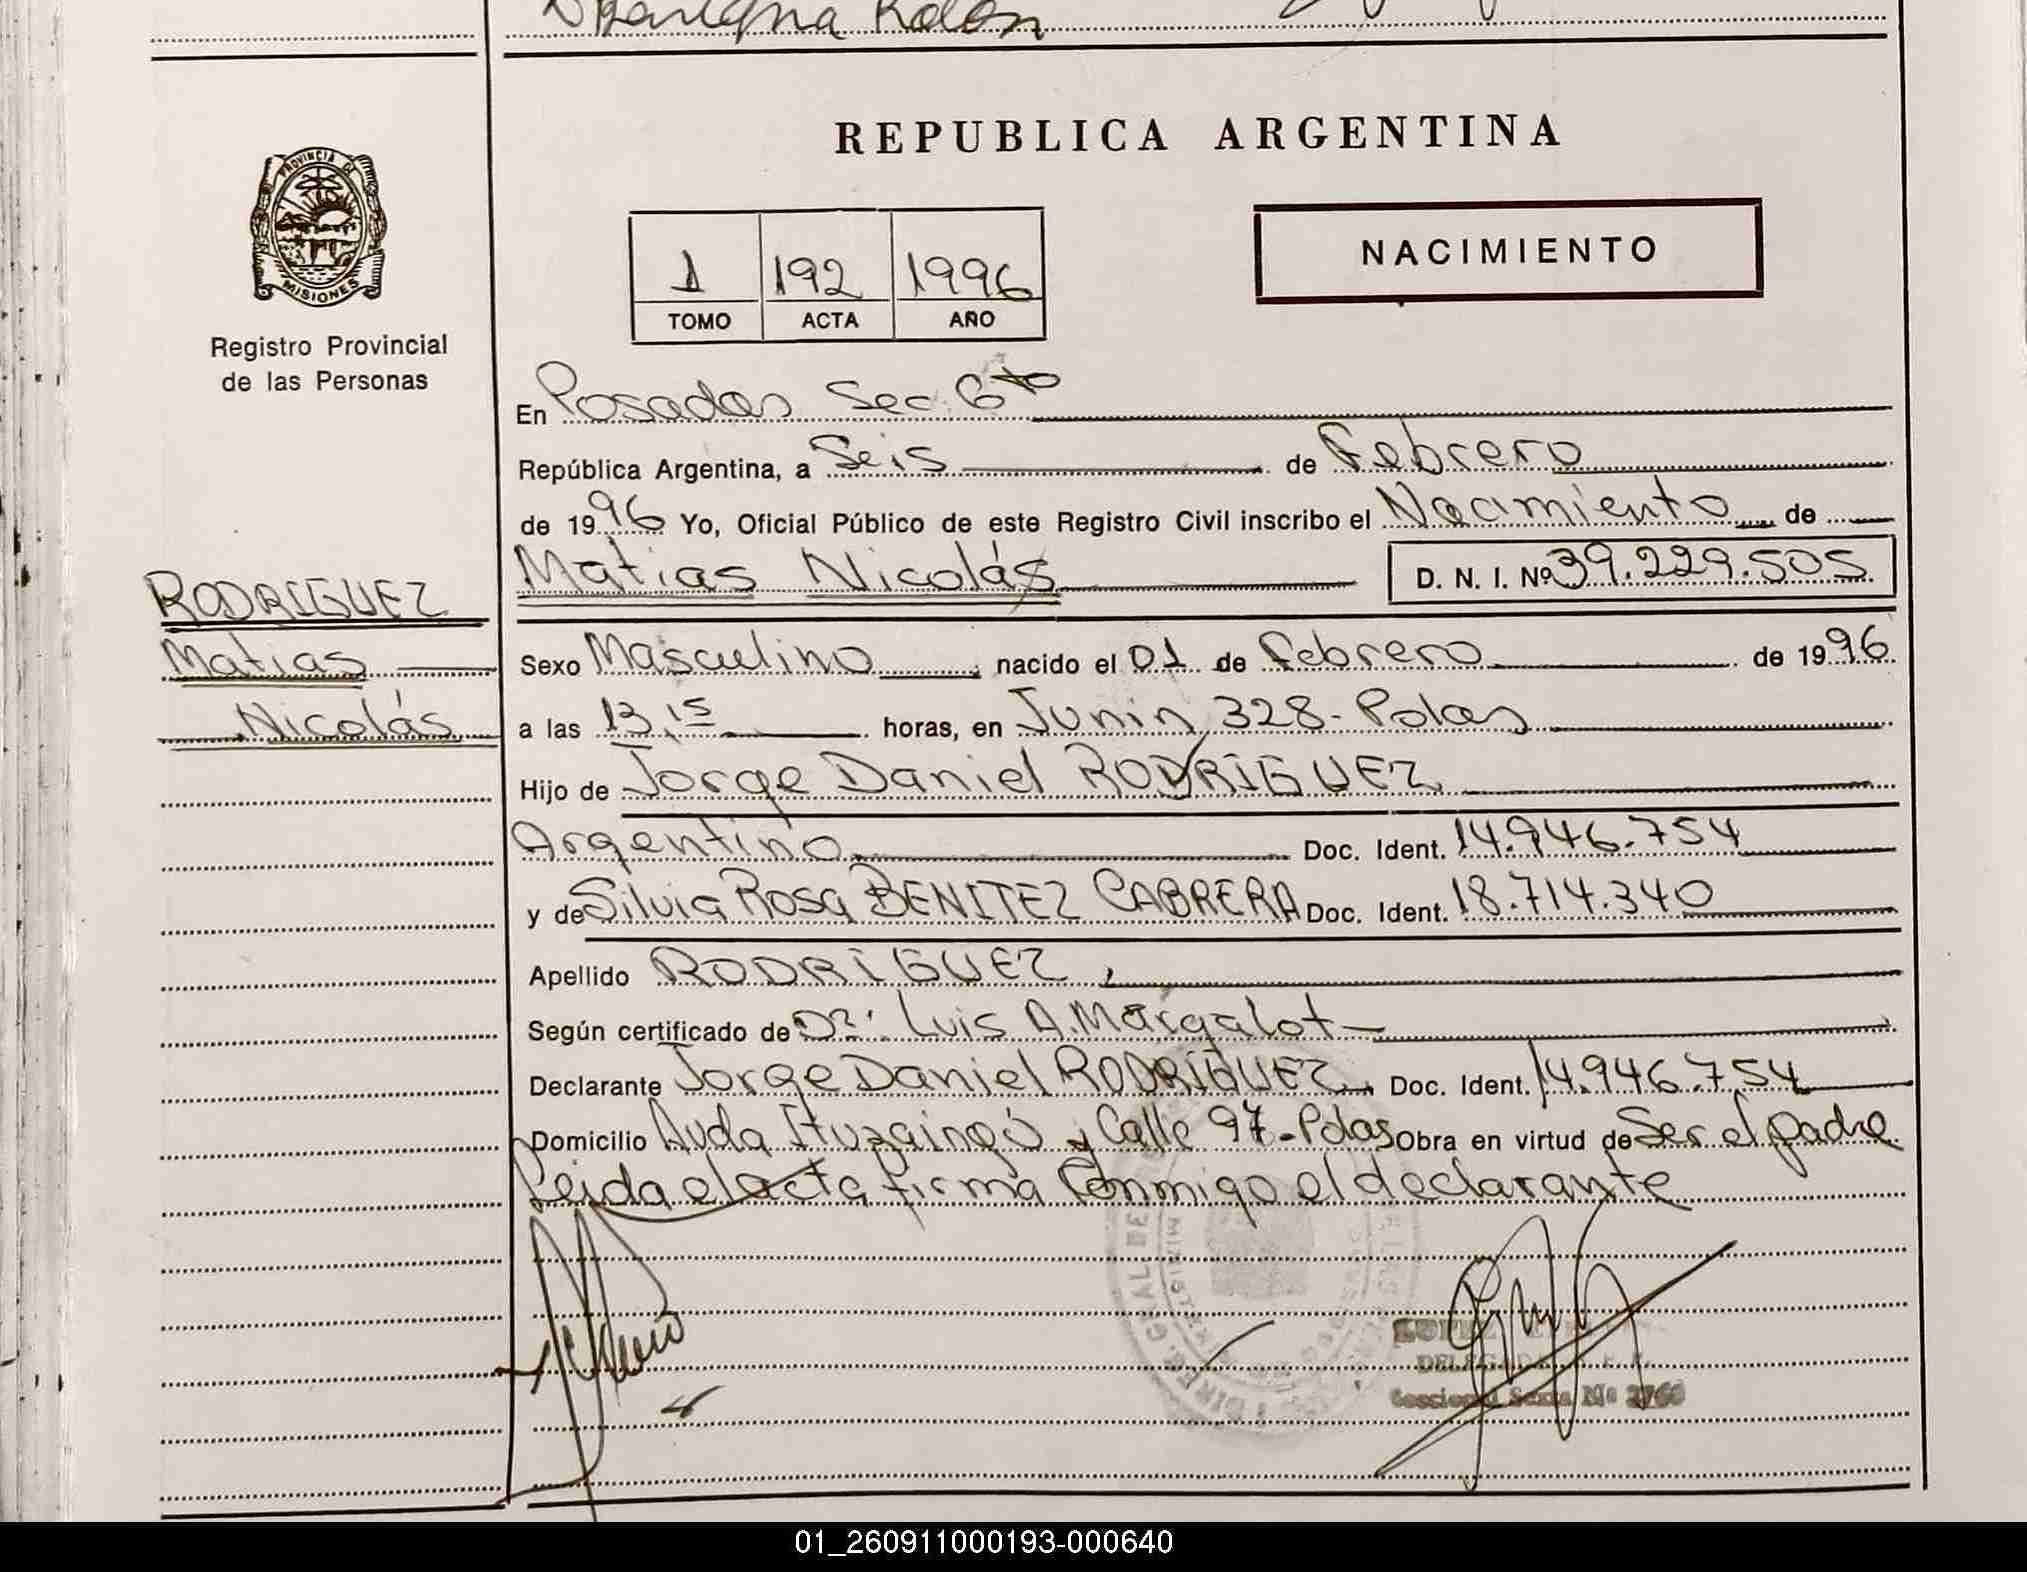 REPUBLICA ARGENTINA
PROVINCIA DE
MISIONES
Registro Provincial
de las Personas
NACIMIENTO
1 192 1996
TOMO ACTA AÑO
En Posadas Sec. 6to
República Argentina, a Seis de Febrero
de 1996 Yo, Oficial Público de este Registro Civil inscribo el Nacimiento de
Matias Nicolás D. N. I. Nº 39.229.505
RODRIGUEZ
Matias
Nicolás
Sexo Masculino nacido el 01 de Febrero de 1996
a las 13,15 horas, en Junin 328-Pdas
Hijo de Jorge Daniel RODRIGUEZ
Argentino Doc. Ident. 14.946.754
y de Silvia Rosa BENITEZ CABRERA Doc. Ident. 18.714.340
Apellido RODRIGUEZ
Según certificado de Dr. Luis A. Margalot
Declarante Jorge Daniel RODRIGUEZ Doc. Ident. 14.946.754
Domicilio Avda Ituzaingó y Calle 97-Pdas Obra en virtud de Ser el padre
Leida el acta firma Conmigo el declarante
01_260911000193-000640